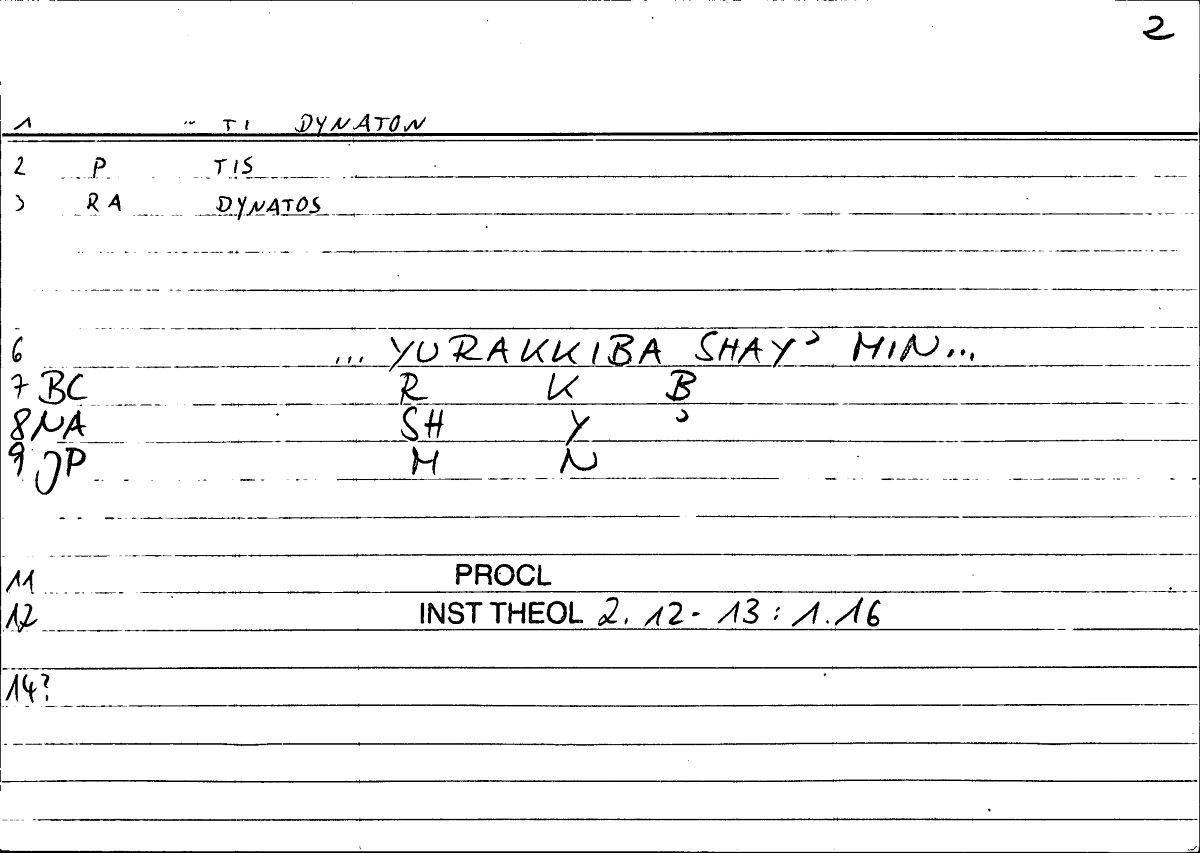 2
1 " TI DYNATON
2 P TIS
3 RA DYNATOS
6 ... YURAKKIBA SHAYʾ MIN...
7 BC R K B
8 NA SH Y ʾ
9 JP M N
11 PROCL
12 INST THEOL 2. 12- 13: 1.16
14?